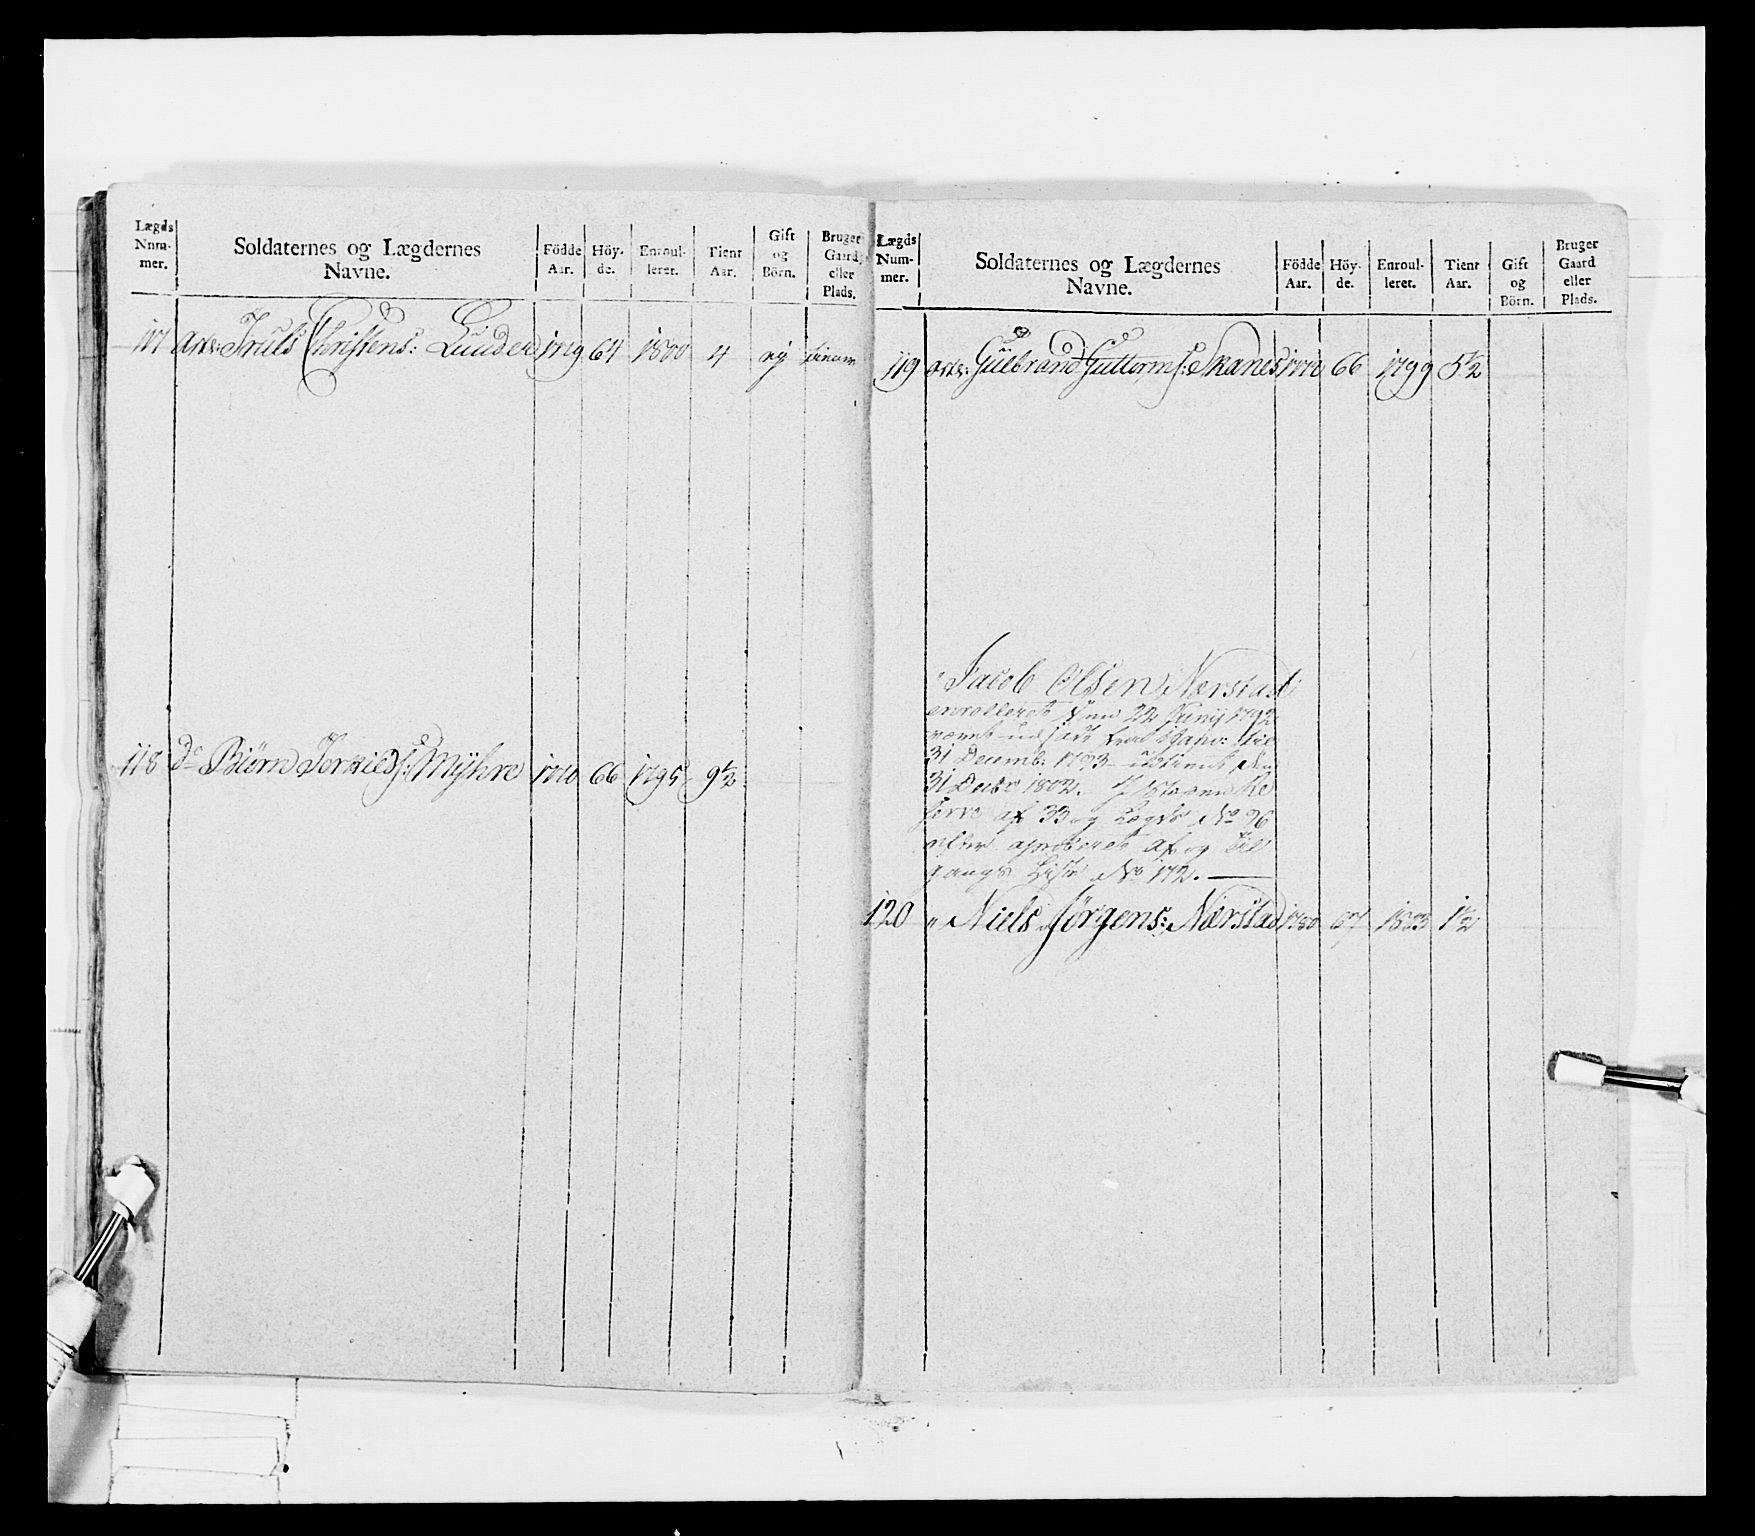 Lægds Num- mer. Soldaternes og Lægdernes Navne. Födde Aar. Höy- de. Enroul- leret. Tient Aar. Gift og Börn. Bruger Gaard, eller Plads.
117 Truls Christens: Lunder 64 1800 4 ey
118 Do Biörn Myhre 66 1795 9 1/2
Lægds Num- mer. Soldaternes og Lægdernes Navne. Födde Aar. Höy- de. Enroul- leret. Tient Aar. Gift og Börn. Bruger Gaard eller Plads.
119 Gulbrand Guttorms: Skanes 66 1799 5 1/2
Jacob Olsen Nærstad
enrolleret den 22 Junij 1792
31 Decemb: 1793 den
31 Decbr 1802. Re
serve af 33 og Lægds No 96
efter aproberet af og til
gangs Liste No 172.
120 " Niels Jørgens: Nærstad 1780 67 1803 1 1/2